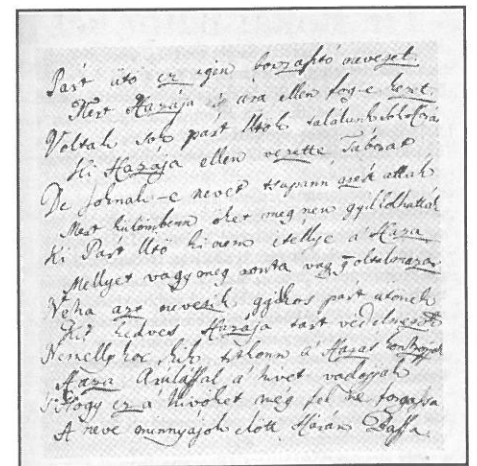 Párt ütő ez igen borzasztó nevezet.
Mert Hazája ára ellen fog-e kezet.
Voltak sok párt Utők találunk
Ki Hazája ellen vezette Táborát
De soknak-e nevet tsupánn azok attak
Mert külömbenn őket meg nem gyűlölhatták
Ki Párt Ütő ki nem itéllye a Haza
Mellyet vagy meg ronta vagy oltalmaza
Néha azt nevezik gyilkos párt ütőnek
Ki kedves Hazája tart védelmezőt
Némelly kik titkonn a Hazát
Haza Árulással a hívet vadoják
Hogy ez a hívöket meg fel ne forgassa
A neve minnyájok előtt Bassa.